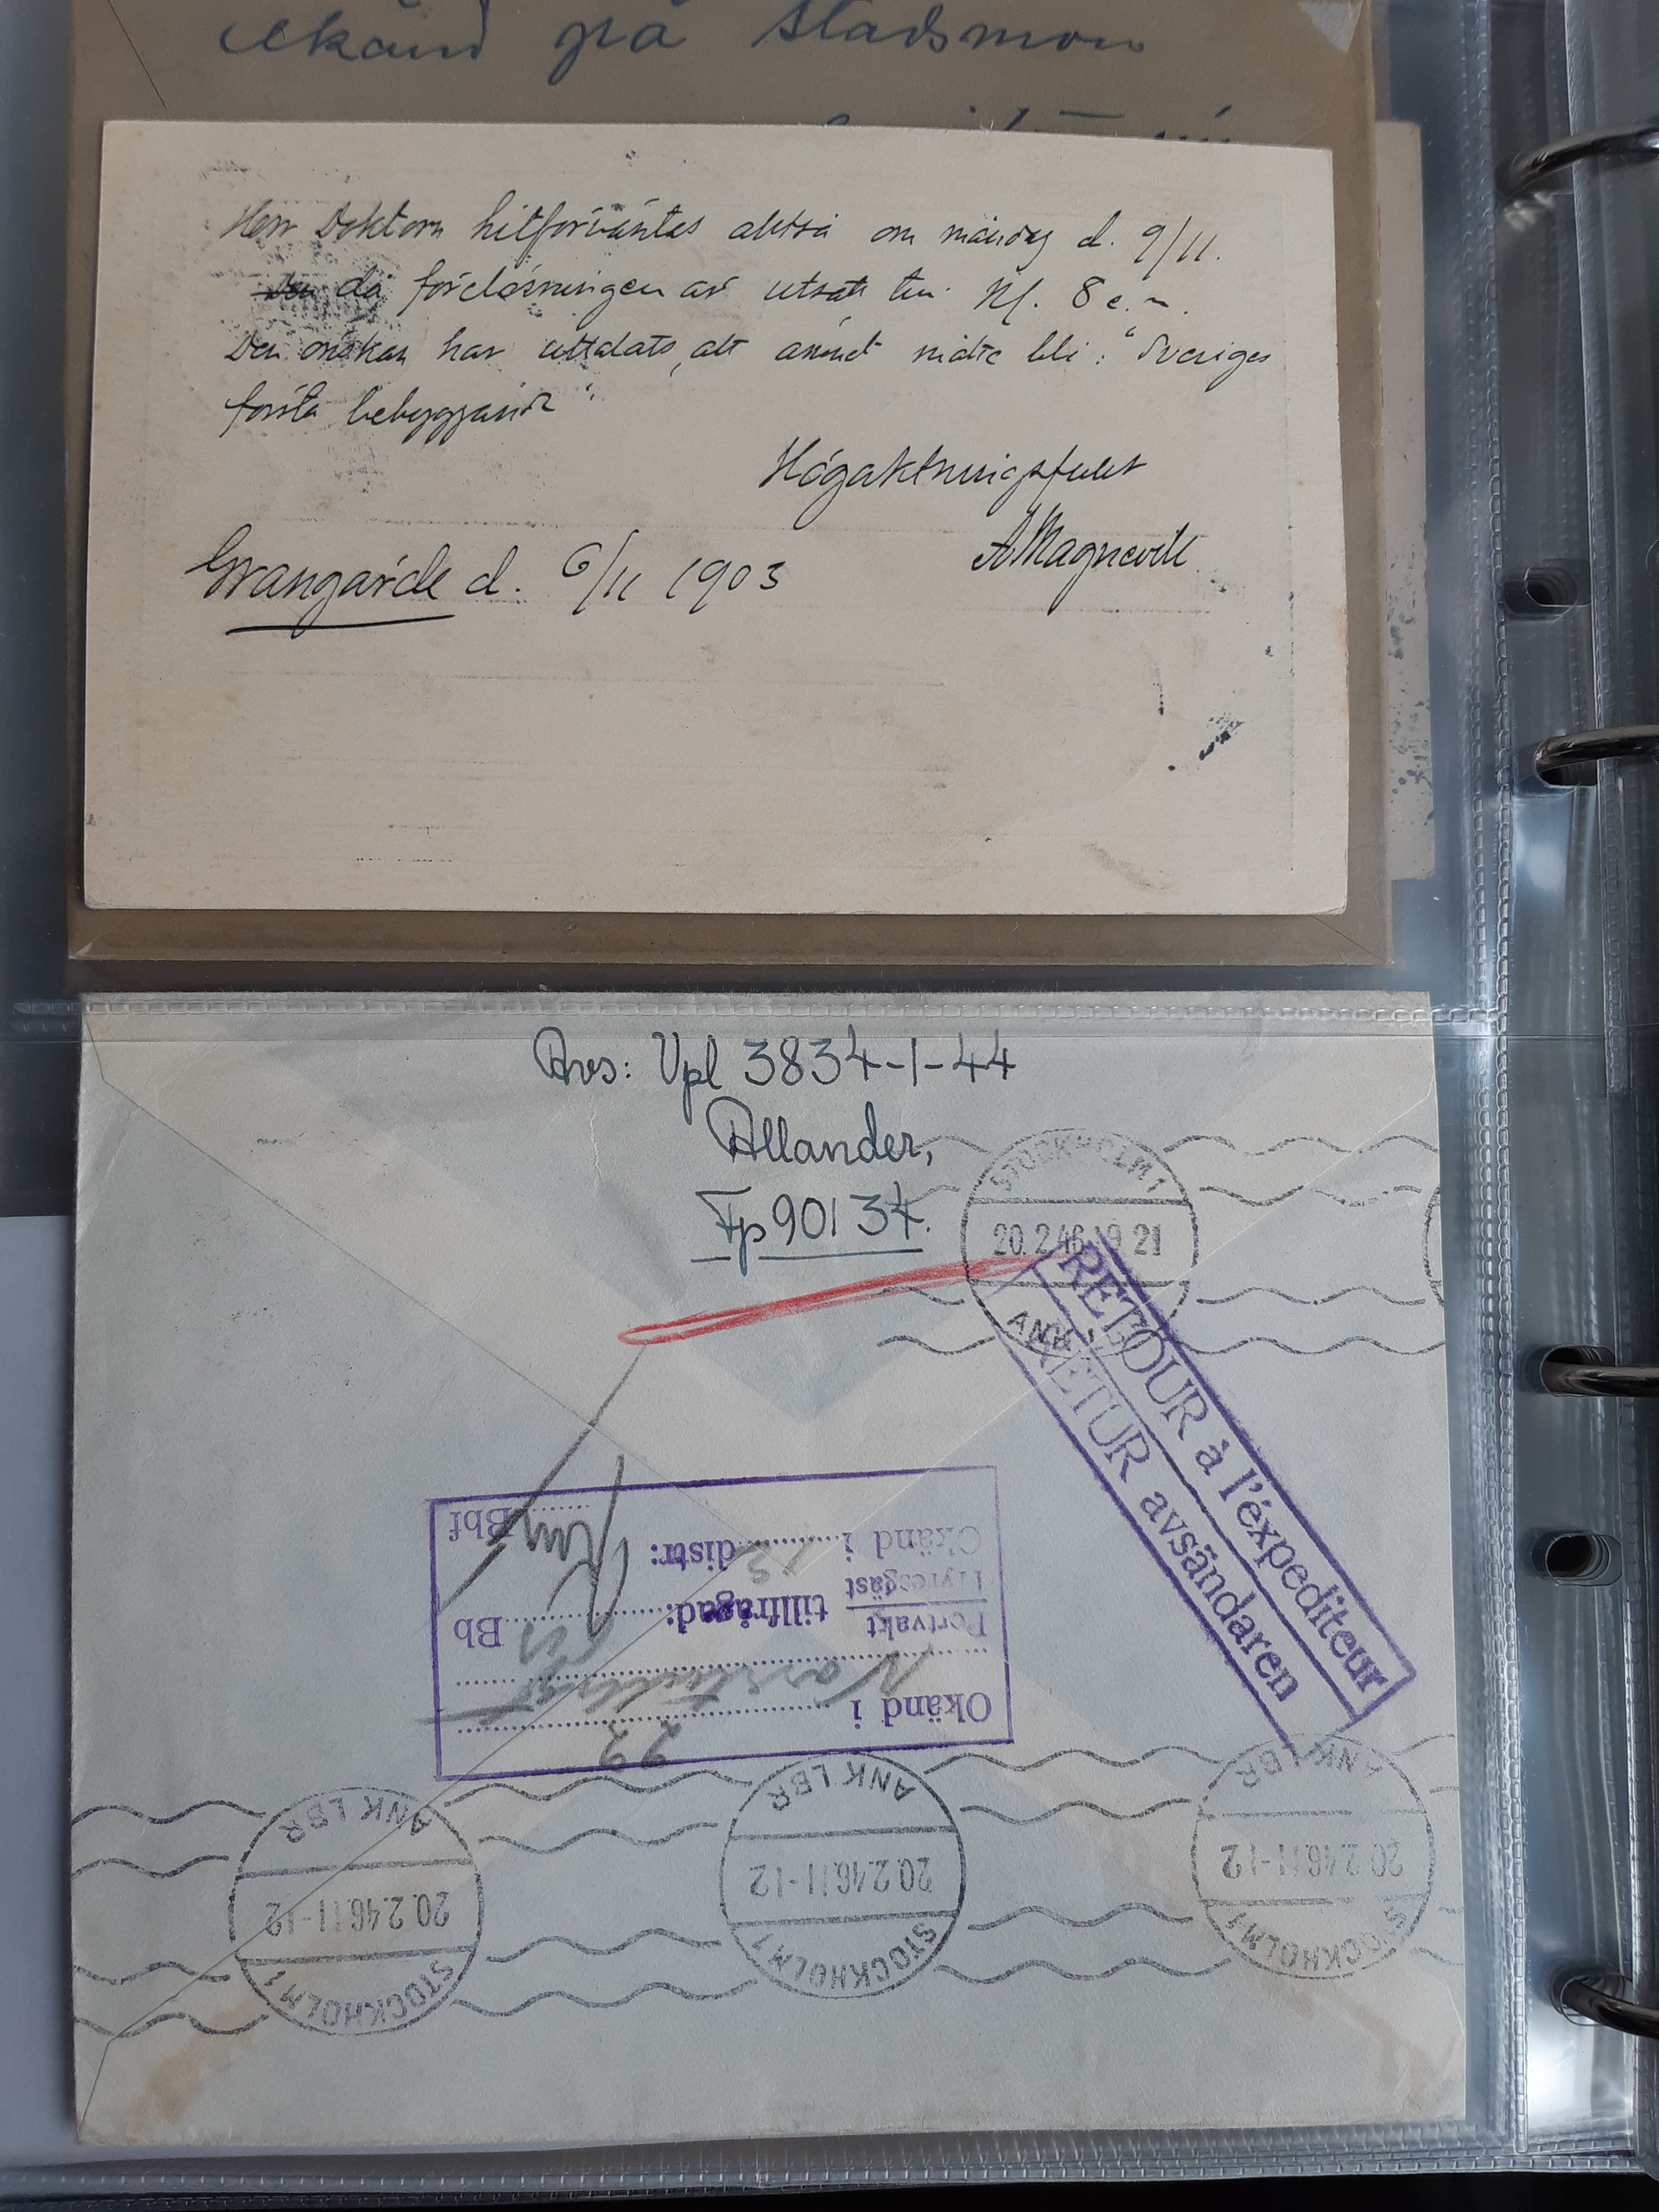 okänd på Stadsmon
Herr Doktorn hitförväntas alltså om måndag d. 9/11.
då föreläsningen är utsatt till Kl. 8 e.m.
Den önskan har uttalats, att ämnet måtte bli: "Sveriges
första bebyggande".
Högaktningsfullt
A Magnevill
Grangärde d. 6/11 1903
Avs: Vpl 3834-1-44
Allander,
Fp 90134.
STOCKHOLM 1
20.2.46 19 21
ANK
RETOUR à l'éxpediteur
RETUR avsändaren
22
Okänd i
Portvakt
Hyresgäst
tillfrågad: Bb
Okänd i distr: Bbf
STOCKHOLM 1
20.2.46.11-12
ANK LBR
STOCKHOLM 1
20.2.46.11-12
ANK LBR
STOCKHOLM 1
20.2.46.11-12
ANK LBR